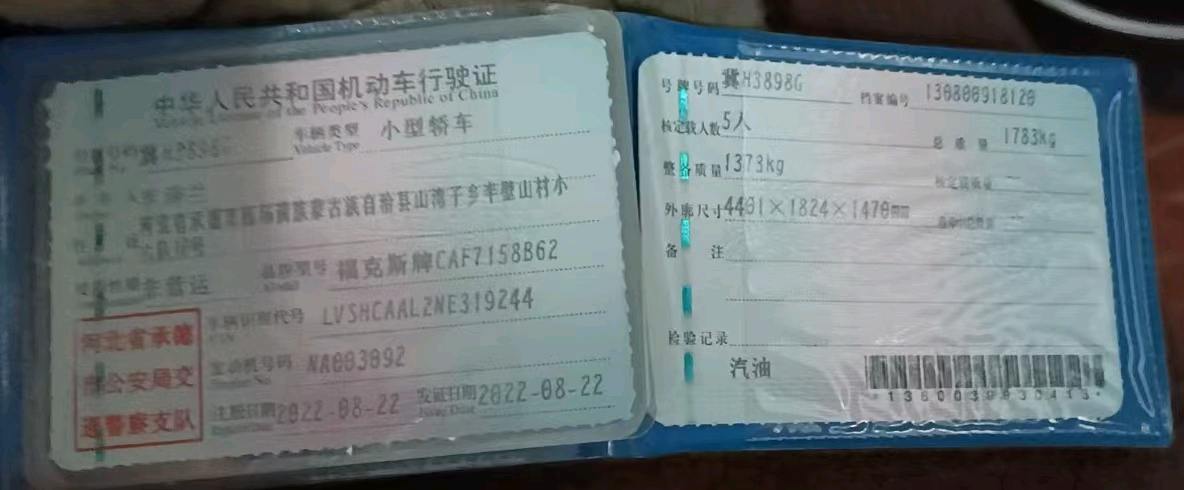 中华人民共和国机动车行驶证
Vehicle License of the People's Republic of China
号牌号码 冀H3898G 车辆类型 小型轿车
Vehicle Type
河北省承德市 满族蒙古族自治县山湾子乡半壁山村小
使用性质 非营运 品牌型号 福克斯牌CAF7158B62
Model
车辆识别代号 LVSHCAAL2NE319244
VIN
发动机号码 NA003092
Engine No
注册日期 2022-08-22 发证日期 2022-08-22
Issue Date
河北省承德
市公安局交
通警察支队
号牌号码 冀H3898G 档案编号 130800918120
核定载人数 5人 总质量 1783kg
整备质量 1373kg 核定载质量
外廓尺寸 4401×1824×1470mm
备注
检验记录
汽油